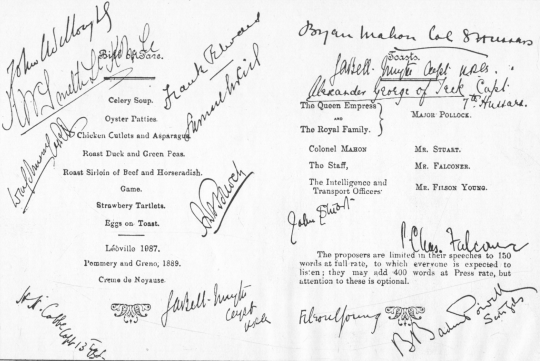 John Willoughby
Bill of Fare.
Frank Edward
Celery Soup.
Oyster Patties.
Chicken Cutlets and Asparagus.
Roast Duck and Green Peas.
Roast Sirloin of Beef and Horseradish.
Game.
Strawbery Tartlets.
Eggs on Toast.
Léoville 1987.
Pommery and Greno, 1889.
Creme de Noyause.
Bryan Mahon Col 8 Hussars
Toasts.
Alexander George of Teck Capt.
7th Hussars
The Queen Empress
AND
The Royal Family.
MAJOR POLLOCK.
Colonel MAHON
MR. STUART.
The Staff,
MR. FALCONER.
The Intelligence and
Transport Officers
MR. FILSON YOUNG.
John Stuart
Chas. Falconer
The proposers are limited in their speeches to 150
words at full rate, to which everyone is expected to
listen; they may add 400 words at Press rate, but
attention to these is optional.
Filson Young